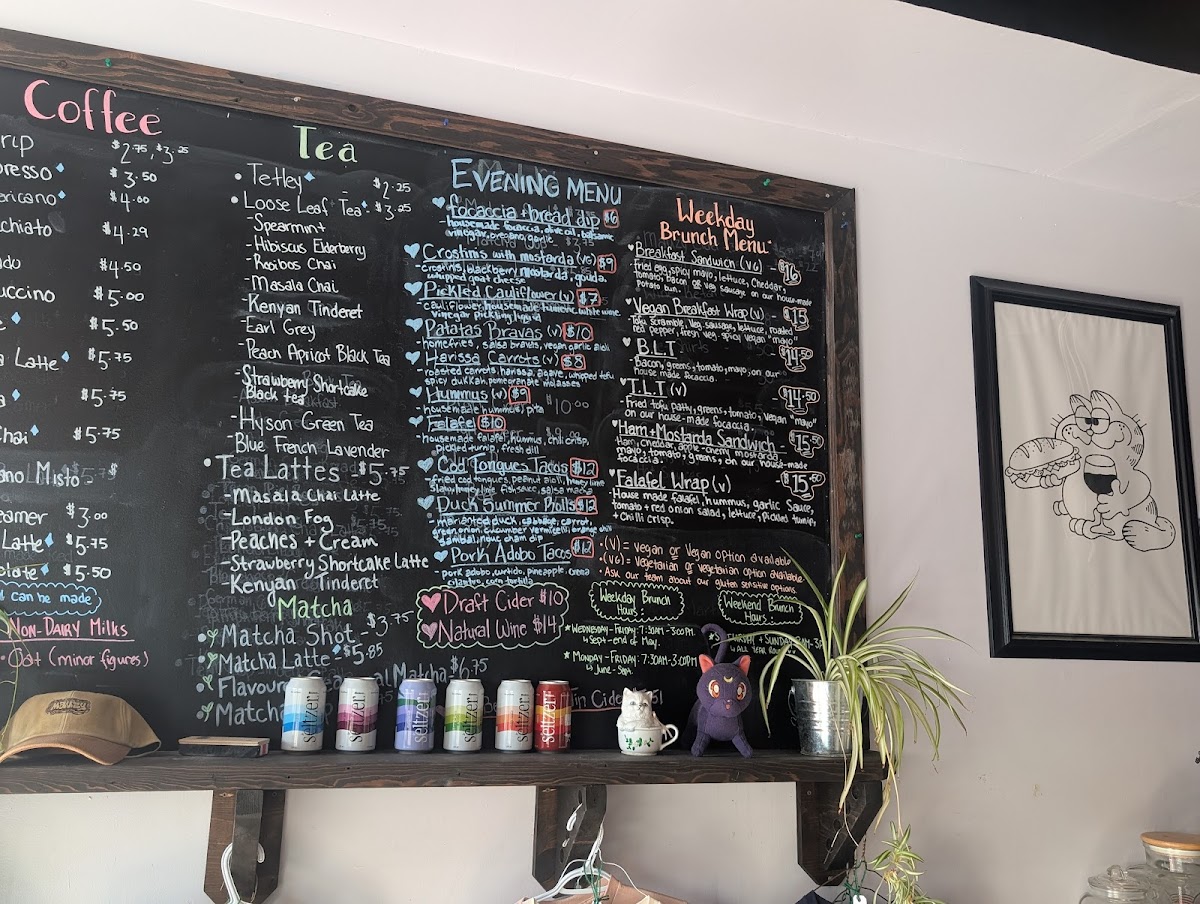 Coffee
$2.75, $3.25
$3.50
$4.00
$4.29
$4.50
$5.00
$5.50
Latte $5.75
$5.75
Chai $5.75
Misto
$3.00
Latte $5.75
$5.50
can be made
Non-Dairy Milks
Oat (minor figures)
Tea
• Tetley - $2.25
• Loose Leaf Tea - $3.25
- Spearmint
- Hibiscus Elderberry
- Rooibos Chai
- Masala Chai
- Kenyan Tinderet
- Earl Grey
- Peach Apricot Black Tea
- Strawberry Shortcake
Black Tea
- Hyson Green Tea
- Blue French Lavender
• Tea Lattes - $5.75
- Masala Chai Latte
- London Fog
- Peaches + Cream
- Strawberry Shortcake Latte
- Kenyan Tinderet
Matcha
Matcha Shot - $3.75
Matcha Latte - $5.85
Matcha $6.75
Evening Menu
focaccia + bread dip $6
- housemade focaccia, olive oil, balsamic
vinegar, oregano, garlic
Crostinis with mostarda (VG) $9
- crostinis, blackberry mostarda, gouda,
whipped goat cheese
Pickled Cauliflower (v) $7
- cauliflower, housemade turmeric white wine
vinegar pickling liquid
Patatas Bravas (v) $10
homefries, salsa bravas, vegan garlic aioli
Harissa Carrots (v) $8
roasted carrots, harissa, agave, whipped tofu
spicy dukkah, pomegranate molasses
Hummus (v) $9
- housemade hummus, pita
Falafel $10
- housemade falafel, hummus, chili crisp,
pickled turnip, fresh dill
Cod Tongues Tacos $12
- fried cod tongues, peanut aioli, honey lime
slaw, honey lime fish sauce, salsa macha
Duck Summer Rolls $12
- marinated duck, cabbage, carrot,
green onion, cucumber vermicelli, orange chili
sambal, nuoc cham dip
Pork Adobo Tacos $12
- pork adobo, curtido, pineapple, crema
cilantro, corn tortilla
Draft Cider $10
Natural Wine $14
Weekday
Brunch Menu
Breakfast Sandwich (VG) - $16
fried egg, spicy mayo, lettuce, Cheddar,
tomato, bacon or veg sausage on our house-made
potato bun.
Vegan Breakfast Wrap (v) - $15
Tofu scramble, veg. sausage, lettuce, roasted
red pepper, fresh veg, spicy vegan "mayo"
B.L.T $14.50
Bacon, greens, tomato, mayo, on our
house made focaccia.
T.L.T (v) $14.50
Fried tofu patty, greens, tomato, vegan "mayo"
on our house-made focaccia.
Ham + Mostarda Sandwich - $15.50
Ham, cheddar, apple-cherry mostarda
mayo, tomato, greens, on our house-made
focaccia.
Falafel Wrap (v) - $15.50
House made falafel, hummus, garlic sauce,
tomato + red onion salad, lettuce, pickled turnip,
+ chili crisp.
• (V) = Vegan or Vegan option available
• (VG) = Vegetarian or Vegetarian option available
• Ask our team about our gluten sensitive options.
Weekday Brunch
Hours:
* Wednesday - Friday: 7:30AM - 3:00PM
Sept - end of May.
* Monday - Friday: 7:30AM - 3:00PM
June - Sept.
Weekend Brunch
Hours:
All Year Round
seltzer
seltzer
seltzer
seltzer
seltzer
seltzer